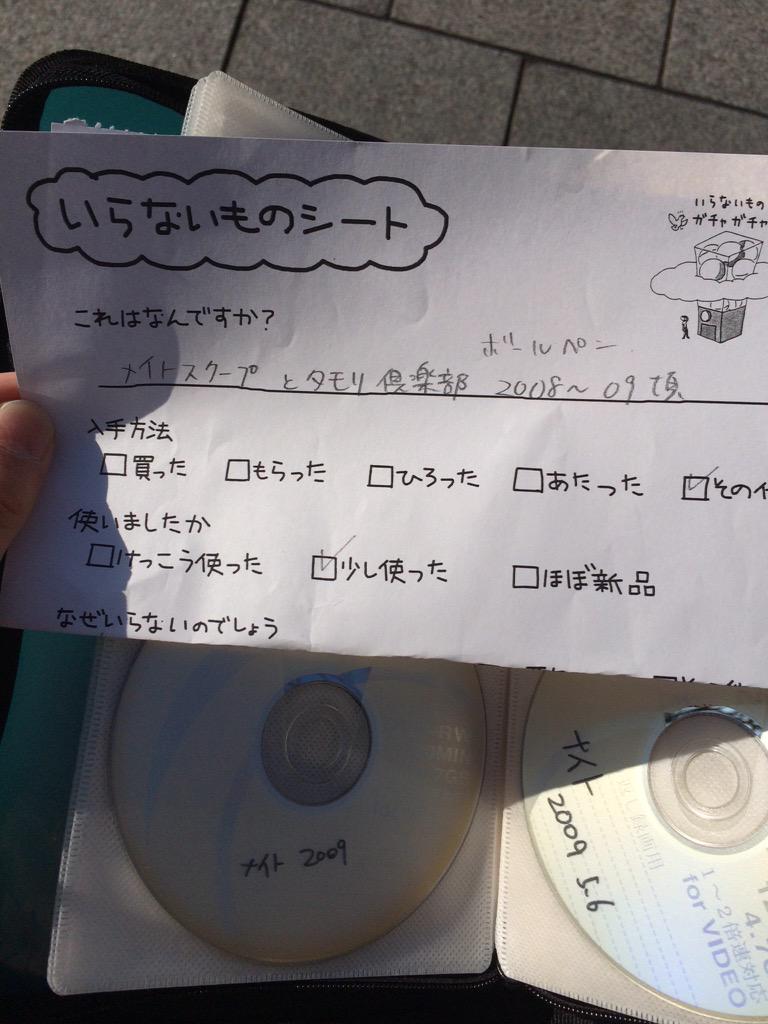 いらないものシート
いらないもの
ガチャガチャ
これはなんですか?
ボールペン
ナイトスクープ とタモリ倶楽部 2008〜09頃
入手方法
□買った □もらった □ひろった □あたった ☑その他
使いましたか
□けっこう使った ☑少し使った □ほぼ新品
なぜいらないのでしょう
ナイト 2009
ナイト 2009 5.6
1〜2倍速対応
for VIDEO